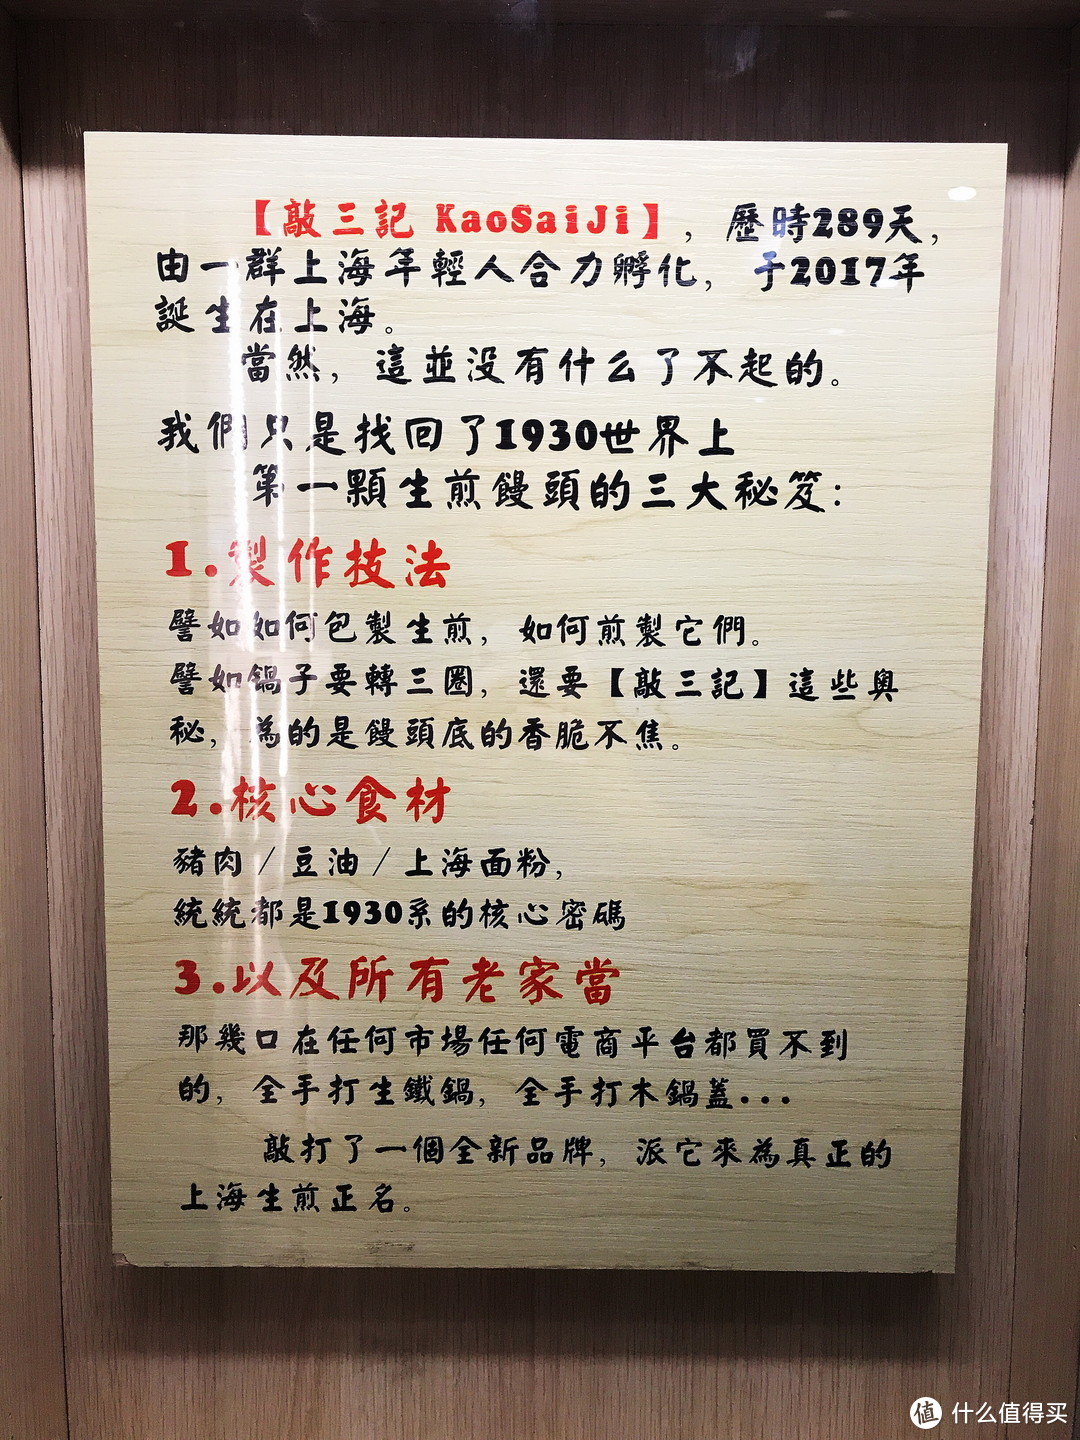 【敲三記 KaoSaiJi】，歷時289天，
由一群上海年輕人合力孵化，于2017年
誕生在上海。
當然，這並没有什么了不起的。
我們只是找回了1930世界上
第一顆生煎饅頭的三大秘笈：
1.製作技法
譬如如何包製生煎，如何煎製它們。
譬如鍋子要轉三圈，還要【敲三記】這些奥
秘，為的是饅頭底的香脆不焦。
2.核心食材
豬肉/豆油/上海面粉，
統統都是1930系的核心密碼
3.以及所有老家當
那幾口在任何市場任何電商平台都買不到
的，全手打生鐵鍋，全手打木鍋蓋...
敲打了一個全新品牌，派它來為真正的
上海生煎正名。
值 什么值得买